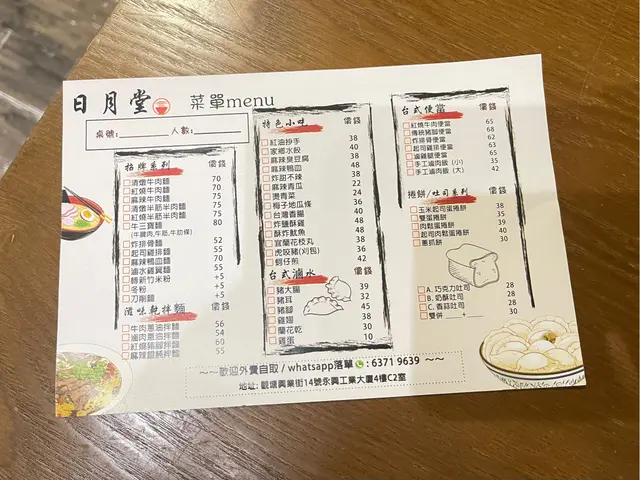 日月堂 菜單menu
桌號: 人數:
招牌系列 價錢
清燉牛肉麵 70
紅燒牛肉麵 70
麻辣牛肉麵 75
清燉半筋半肉麵 75
紅燒半筋半肉麵 75
牛三寶麵 80
(牛腱肉,牛筋,牛肋條)
炸排骨麵 52
起司雞排麵 55
麻辣鴨血麵 70
滷水雞翼麵 55
轉新竹米粉 +5
冬粉 +5
刀削麵 +5
滋味乾拌麵 價錢
牛肉蔥油拌麵 56
滷肉蔥油拌麵 54
紅燒豬腳拌麵 60
麻辣餛飩拌麵 55
特色小吃 價錢
紅油抄手 38
家鄉水餃 40
麻辣臭豆腐 38
麻辣鴨血 48
炸甜不辣 38
麻辣青瓜 22
燙青菜 24
梅子地瓜條 36
台灣香腸 40
炸鹽酥雞 48
酥炸魷魚 48
宜蘭花枝丸 38
虎咬豬(刈包) 36
蚵仔煎 42
台式滷水 價錢
豬大腸 39
豬耳 32
豬腳 45
雞翅 38
蘭花乾 30
雞蛋 10
台式便當 價錢
紅燒牛肉便當 65
傳統豬腳便當 68
炸排骨便當 62
起司雞排便當 63
滷雞腿便當 65
手工滷肉飯 (小) 35
手工滷肉飯 (大) 42
捲餅/吐司系列 價錢
玉米起司蛋捲餅 38
雙蛋捲餅 35
肉鬆蛋捲餅 39
起司肉鬆蛋捲餅 40
蔥抓餅 30
A. 巧克力吐司 28
B. 奶酥吐司 28
C. 香蒜吐司 28
雙併 + 30
~~歡迎外賣自取 / whatsapp落單 : 6371 9639 ~~
地址: 觀塘興業街14號永興工業大廈4樓C2室